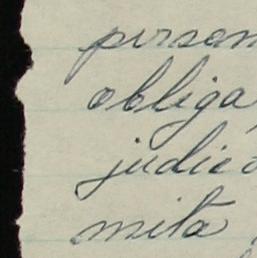 person
obliga
judica
mita